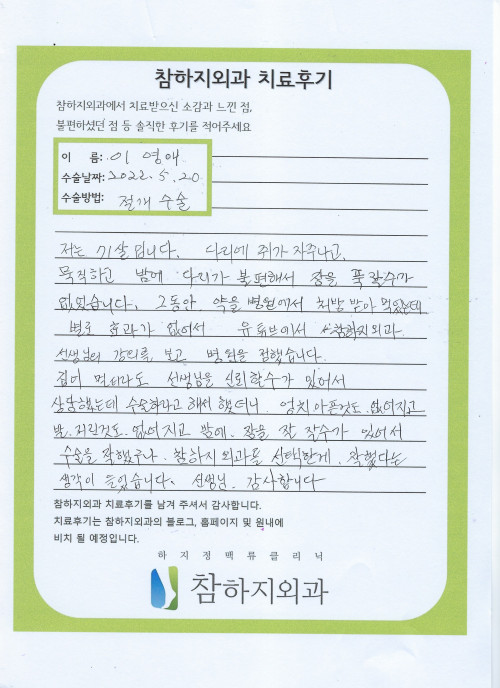 참하지외과 치료후기
참하지외과에서 치료받으신 소감과 느낀 점,
불편하셨던 점 등 솔직한 후기를 적어주세요
이 름: 이 영애
수술날짜: 2022. 5. 20
수술방법: 절개 수술
저는 71살입니다. 다리에 쥐가 자주나고,
묵직하고 밤에 다리가 불편해서 잠을 푹잘수가
없었습니다. 그동안 약을 병원에서 처방 받아 먹었는데
별로 효과가 없어서 유튜브에서 참하지외과.
선생님의 강의를 보고 병원을 정했습니다.
집이 멀더라도 선생님을 신뢰할수가 있어서
상담했는데 수술하라고 해서 했더니. 엉치아픈것도. 없어지고
발. 저린것도. 없어지고 밤에. 잠을 잘 잘수가 있어서
수술을 잘했구나. 참하지외과를 선택한게. 잘했다는
생각이 들었습니다. 선생님. 감사합니다
참하지외과 치료후기를 남겨 주셔서 감사합니다.
치료후기는 참하지외과의 블로그, 홈페이지 및 원내에
비치 될 예정입니다.
하지정맥류클리닉
참하지외과